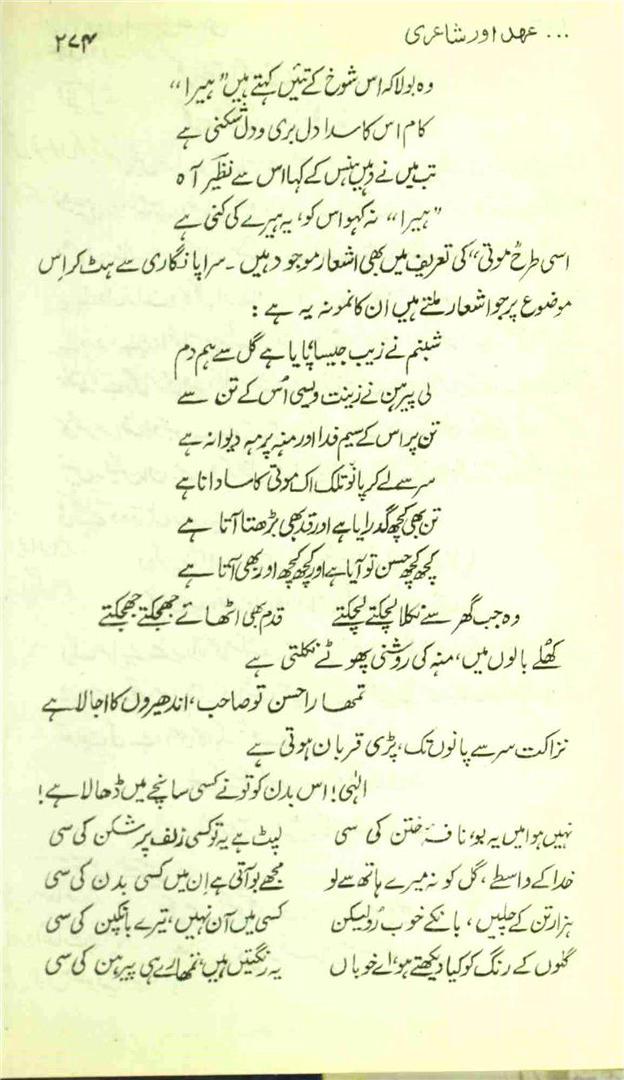 ... عہد اور شاعری ۲۷۴
وہ بولا کہ اس شوخ کے تئیں کہتے ہیں "ہیرا"
کام اس کا سدا دل بری و دل شکنی ہے
تب میں نے وہیں ہنس کے کہا اس سے نظیرؔ آہ
"ہیرا" نہ کہو اس کو، یہ ہیرے کی کنی ہے
اسی طرح "موتی" کی تعریف میں بھی اشعار موجود ہیں۔ سراپا نگاری سے ہٹ کر اس
موضوع پر جو اشعار ملتے ہیں ان کا نمونہ یہ ہے:
شبنم نے زیب جیسا پایا ہے گل سے ہم دم
لی پیرہن نے زینت ویسی اُس کے تن سے
تن پر اس کے سیم فدا اور منہ پر مہ دیوانہ ہے
سر سے لے کر پانو تلک اک موتی کا سا دانا ہے
تن بھی کچھ گدرایا ہے اور قد بھی بڑھتا آتا ہے
کچھ کچھ حسن تو آیا ہے اور کچھ کچھ اور بھی آتا ہے
وہ جب گھر سے نکلا لچکتے لچکتے قدم بھی اٹھائے جھجکتے جھجکتے
کھُلے بالوں میں، منہ کی روشنی پھوٹے نکلتی ہے
تمھارا حسن تو صاحب، اندھیروں کا اجالا ہے
نزاکت سر سے پانوں تک، پڑی قربان ہوتی ہے
الٰہی! اس بدن کو تو نے کسی سانچے میں ڈھالا ہے!
نہیں ہوا میں یہ بو، نافۂ ختن کی سی لپٹ ہے یہ تو کسی زلف پر شکن کی سی
خدا کے واسطے، گل کو نہ میرے ہاتھ سے لو مجھے بو آتی ہے اِن میں کسی بدن کی سی
ہزار تن کے چلیں، بانکے خوب رُو لیکن کسی میں آن نہیں، تیرے بانکپن کی سی
گلوں کے رنگ کو کیا دیکھتے ہو، اے خوباں یہ رنگتیں ہیں، تمھارے ہی پیرہن کی سی